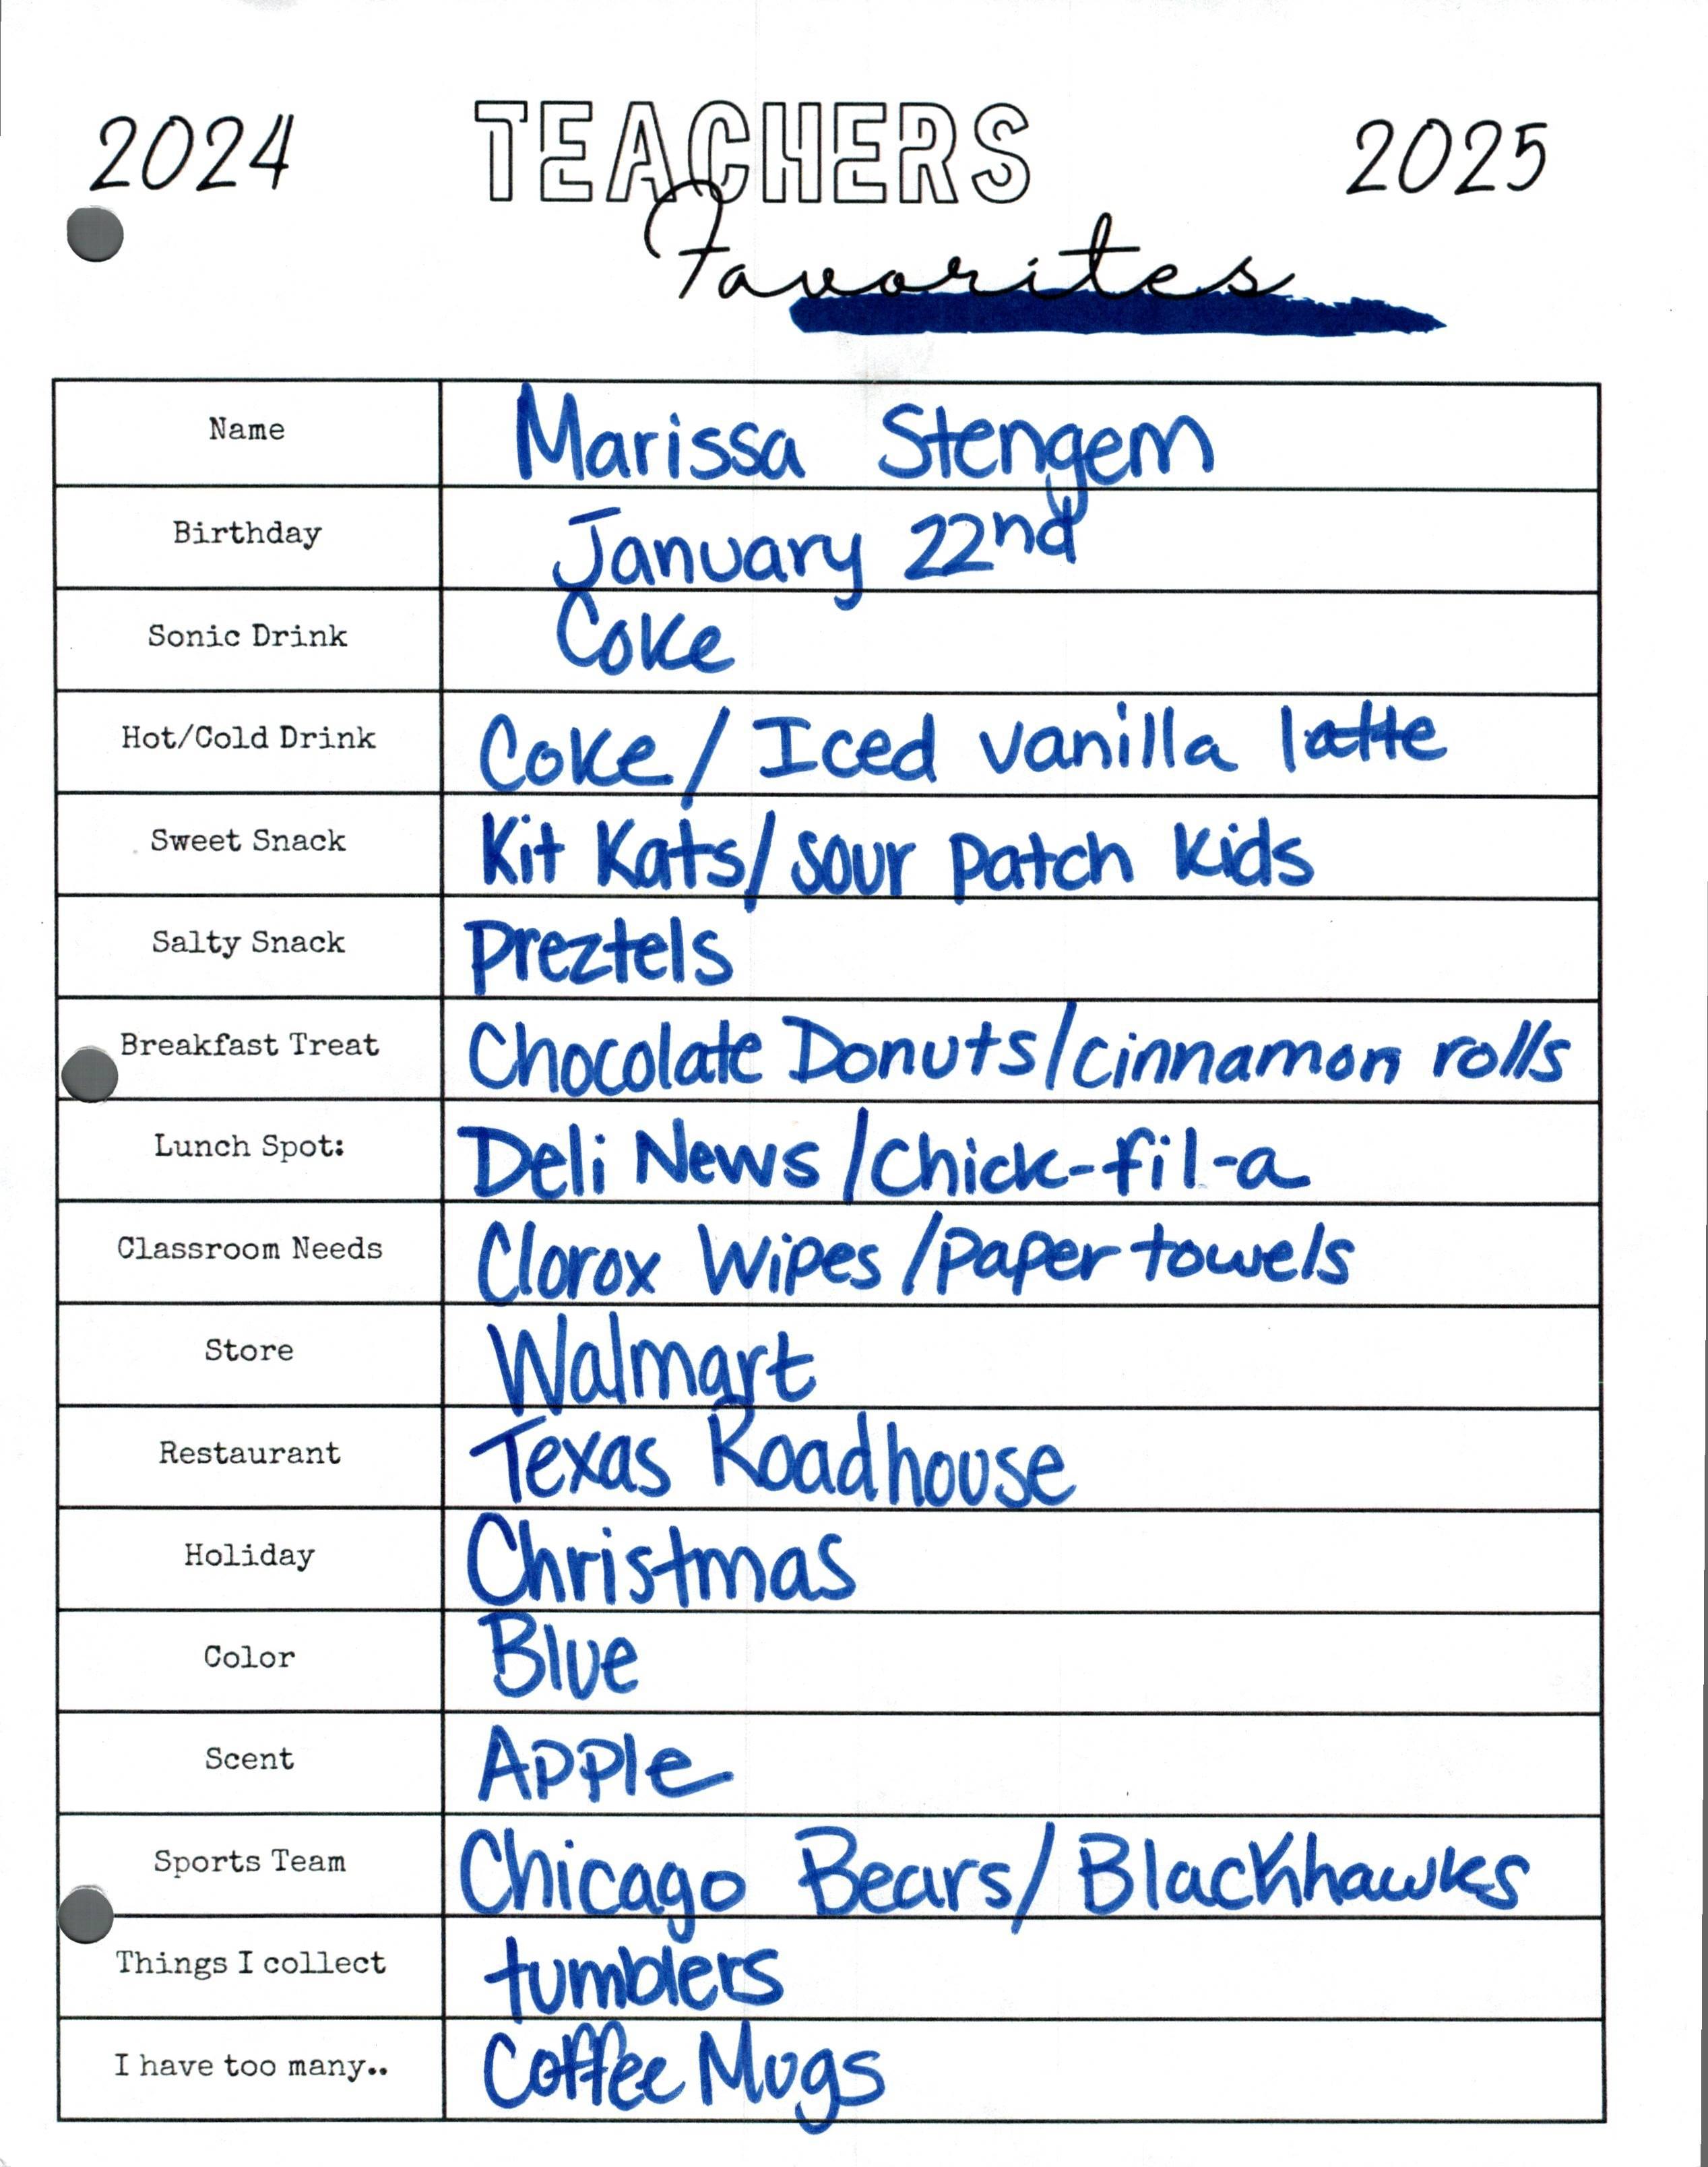 2024 TEACHERS 2025
Favorites
Name Marissa Stengem
Birthday January 22nd
Sonic Drink Coke
Hot/Cold Drink Coke/ Iced vanilla latte
Sweet Snack Kit Kats/sour patch kids
Salty Snack Preztels
Breakfast Treat Chocolate Donuts/cinnamon rolls
Lunch Spot: Deli News/chick-fil-a
Classroom Needs Clorox Wipes/paper towels
Store Walmart
Restaurant Texas Roadhouse
Holiday Christmas
Color Blue
Scent Apple
Sports Team Chicago Bears/Blackhawks
Things I collect tumblers
I have too many.. Coffee Mugs